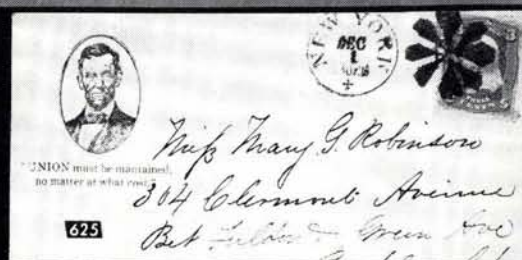 NEW YORK
DEC
1
3
"UNION must be maintained,
no matter at what cost."
Miss Mary G. Robinson
304 Clermont Avenue
Bet Green Ave
625